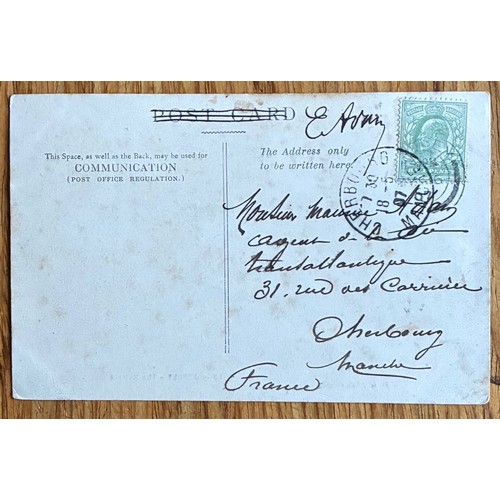 POST CARD
This Space, as well as the Back, may be used for
COMMUNICATION
(POST OFFICE REGULATION.)
The Address only
to be written here.
CHERBOURG
7 30
18 - 5
07
MANCHE
Monsieur Maurice
agent de la Cie
transatlantique
31. rue des Carrières
Cherbourg
Manche
France